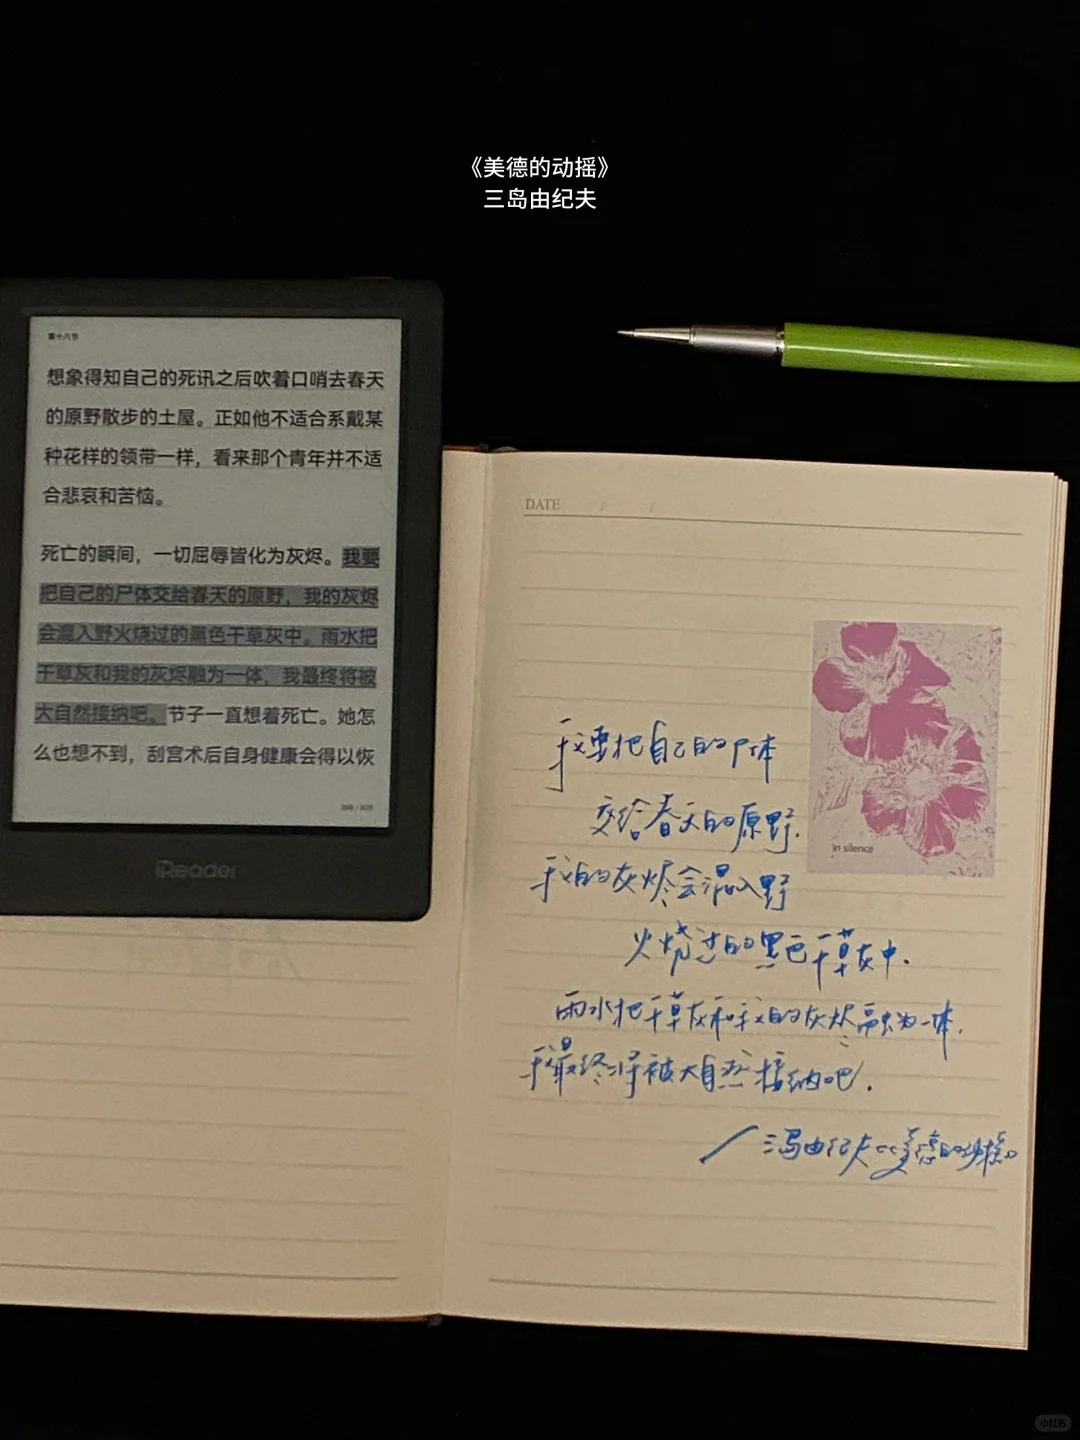 《美德的动摇》
三岛由纪夫
第十八节
想象得知自己的死讯之后吹着口哨去春天
的原野散步的土屋。正如他不适合系戴某
种花样的领带一样，看来那个青年并不适
合悲哀和苦恼。
死亡的瞬间，一切屈辱皆化为灰烬。我要
把自己的尸体交给春天的原野，我的灰烬
会混入野火烧过的黑色干草灰中。雨水把
干草灰和我的灰烬融为一体，我最终将被
大自然接纳吧。节子一直想着死亡。她怎
么也想不到，刮宫术后自身健康会得以恢
iReader
DATE / /
In silence
我要把自己的尸体
交给春天的原野.
我的灰烬会混入野
火烧过的黑色干草灰中.
雨水把干草灰和我的灰烬融为一体.
我最终将被大自然接纳吧.
/三岛由纪夫《美德的动摇》
小红书